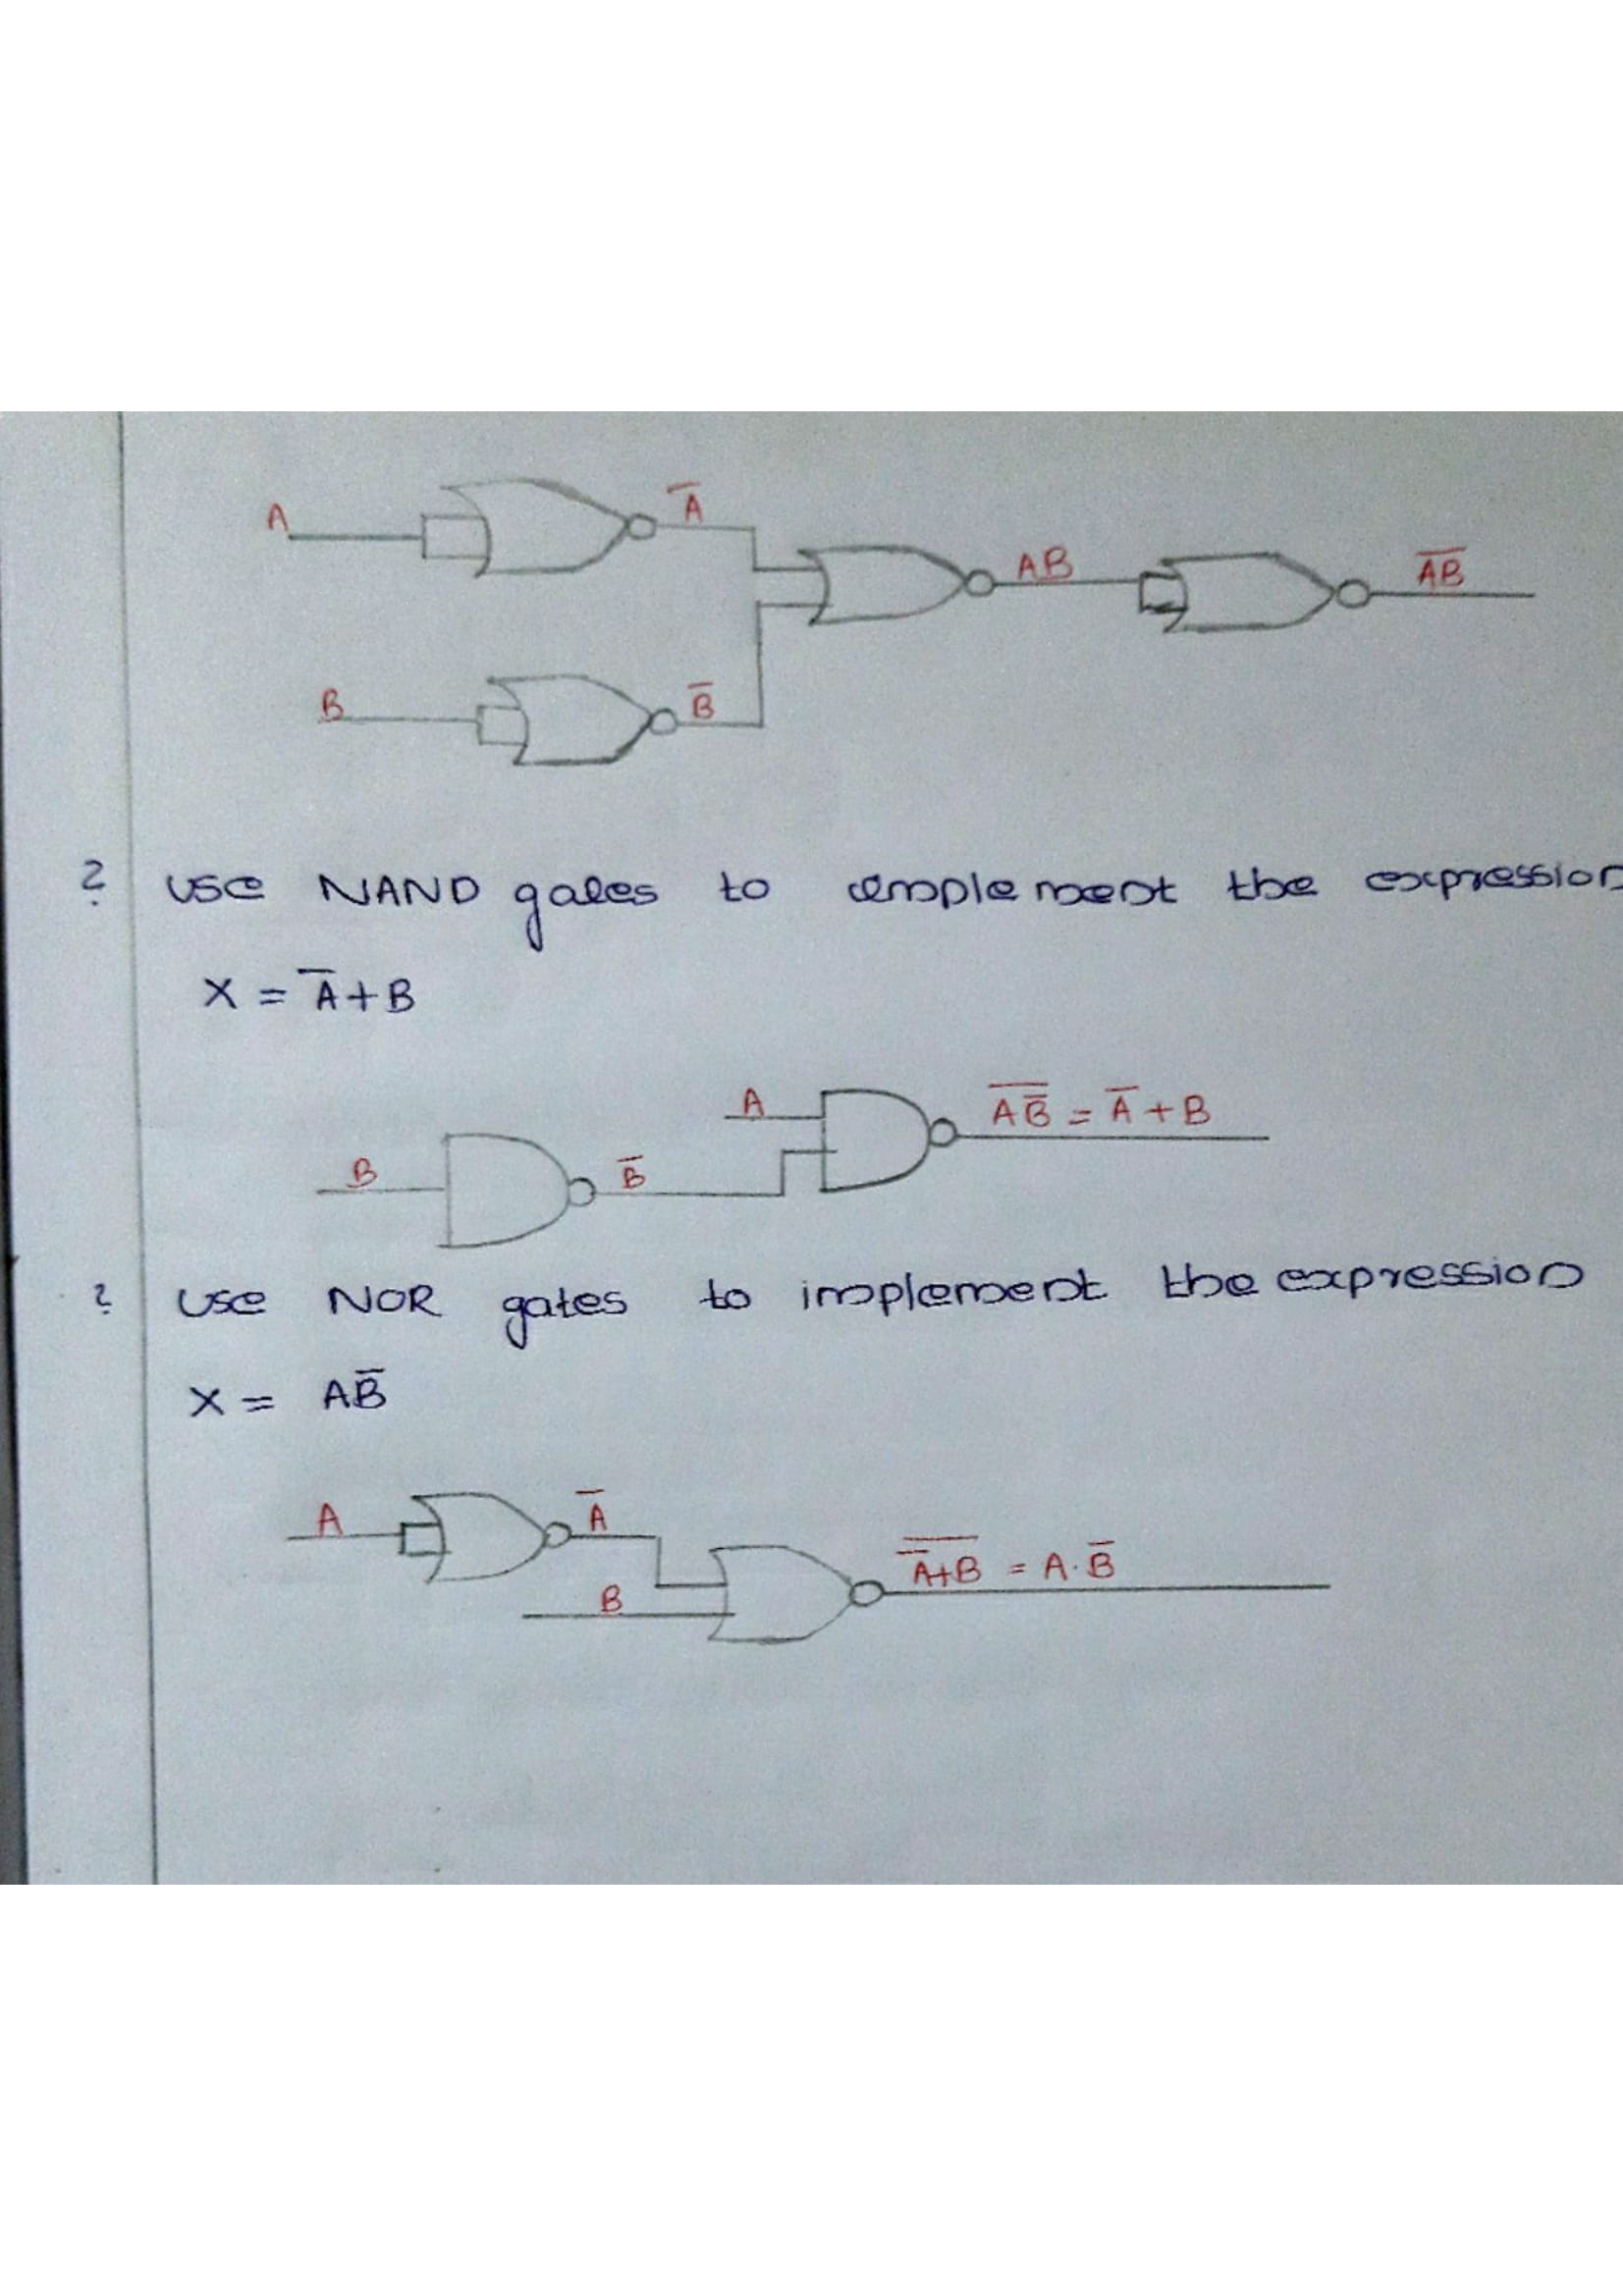 A̅
A
AB
A̅B̅
B̅
B
? Use NAND gates to implement the expression
X = A̅+B
A
A̅B̿ = A̅+B
B
B̅
? Use NOR gates to implement the expression
X = AB̅
A
A̅
A̿+̅B̅ = A·B̅
B